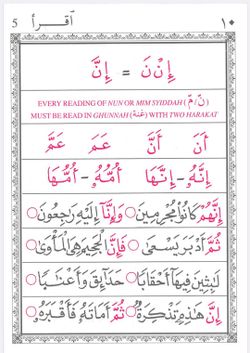 5 أقرأ ١٠
إِنْنَ = إِنَّ
EVERY READING OF NUN OR MIM SYIDDAH (نّ/مّ)
MUST BE READ IN GHUNNAH (غُنَّة) WITH TWO HARAKAT
أَنَ أَنَّ عَمَ عَمَّ
إِنَّهُ - إِنَّهَا أُمُّهُ - أُمُّهَا
إِنَّهُمْ كَانُوا۟ مُجْرِمِينَ وَإِنَّآ إِلَيْهِ رَٰجِعُونَ
ثُمَّ أَدْبَرَ يَسْعَىٰ فَإِنَّ الْجَحِيمَ هِيَ الْمَأْوَىٰ
لَٰبِثِينَ فِيهَآ أَحْقَابًا حَدَآئِقَ وَأَعْنَٰبًا
إِنَّ هَٰذِهِۦ تَذْكِرَةٌ ثُمَّ أَمَاتَهُۥ فَأَقْبَرَهُۥ